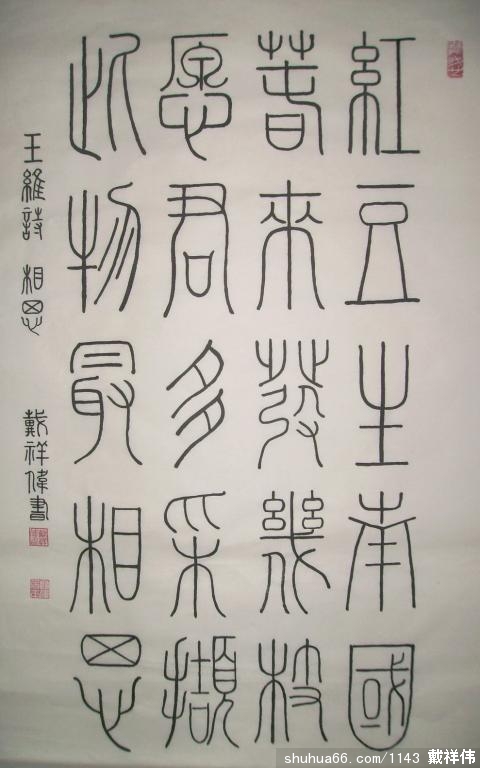 紅豆生南國
春來發幾枝
愿君多采擷
此物最相思
王維詩 相思
戴祥偉書
shuhua66.com/1143 戴祥伟